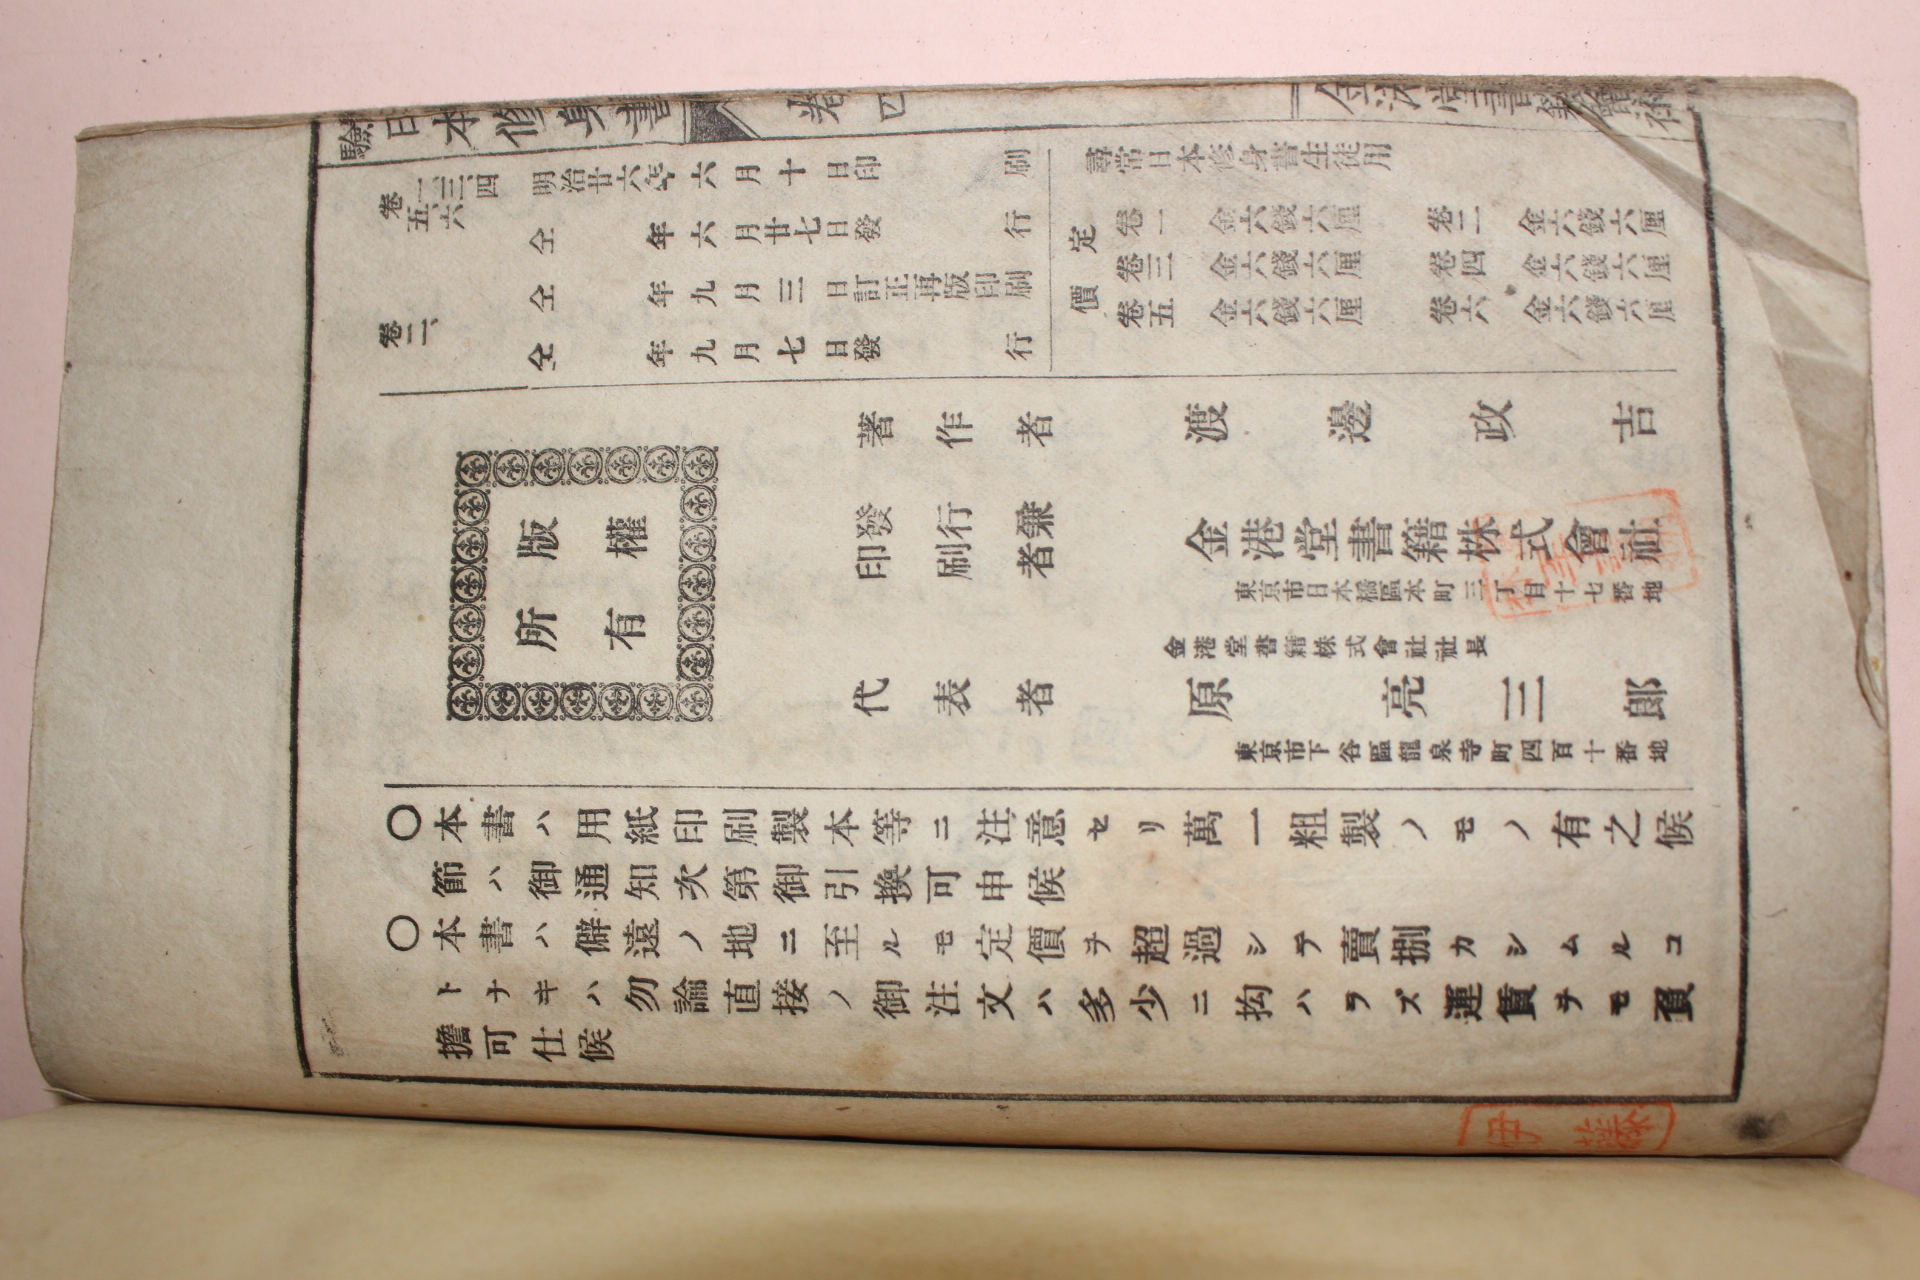 驗日本修身書 卷四 金港堂書籍會社
卷一、三、四
五、六
明治廿六年六月十日印刷
仝年六月廿七日發行
卷二、
仝年九月三日訂正再版印刷
仝年九月七日發行
尋常日本修身書生徒用
定價
卷一 金六錢六厘 卷二 金六錢六厘
卷三 金六錢六厘 卷四 金六錢六厘
卷五 金六錢六厘 卷六 金六錢六厘
版權
所有
著作者 渡邊政吉
發行兼
印刷者 金港堂書籍株式會社
東京市日本橋區本町三丁目十七番地
金港堂書籍株式會社社長
代表者 原亮三郎
東京市下谷區龍泉寺町四百十番地
〇本書ハ用紙印刷製本等ニ注意セリ萬一粗製ノモノ有之候
節ハ御通知次第御引換可申候
〇本書ハ僻遠ノ地ニ至ルモ定價ヲ超過シテ賣捌カシムルコ
トナキハ勿論直接ノ御注文ハ多少ニ拘ハラズ運賃ヲモ負
擔可仕候
伊藤